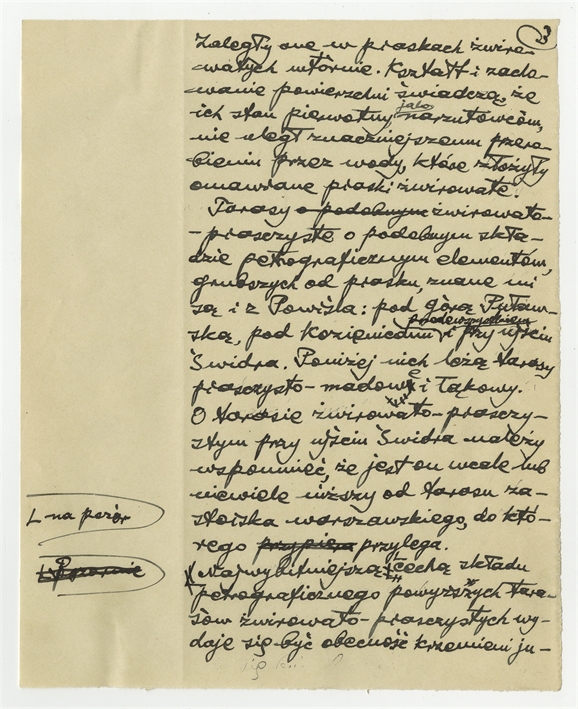 3
Zaległy one w piaskach żwiro-
watych wtórnie. Kształt i zacho-
wanie powierzchni świadczą, że
ich stan pierwotny, jako narzutowców,
nie uległ znaczniejszemu przero-
bieniu przez wody, które złożyły
omawiane piaski żwirowate.
Tarasy o podobnym żwirowato-
-piaszczyste o podobnym skła-
dzie petrograficznym elementów,
grubszych od piasku, znane mi
są i z Powiśla: pod górą Puław-
ską, pod Kozienicami i przedewszystkiem przy ujściu
Świdra. Poniżej nich leżą tarasy
piaszczysto-madowe i łąkowy.
O tarasie żwirowato-piaszczy-
stym przy ujściu Świdra należy
wspomnieć, że jest on wcale lub
niewiele niższy od tarasu za-
stoiska warszawskiego, do któ-
rego przypiera przylega.
Najwybitniejszą cechą składu
petrograficznego powyższych tara-
sów żwirowato-piaszczystych wy-
daje się być obecność krzemieni ju-
L na pozór
Pozornie